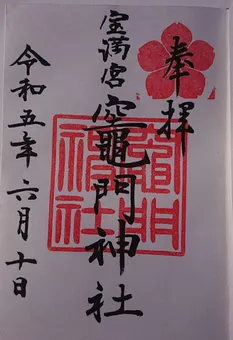 奉拝
宝満宮竈門神社
竈門
神社
令和五年六月十日